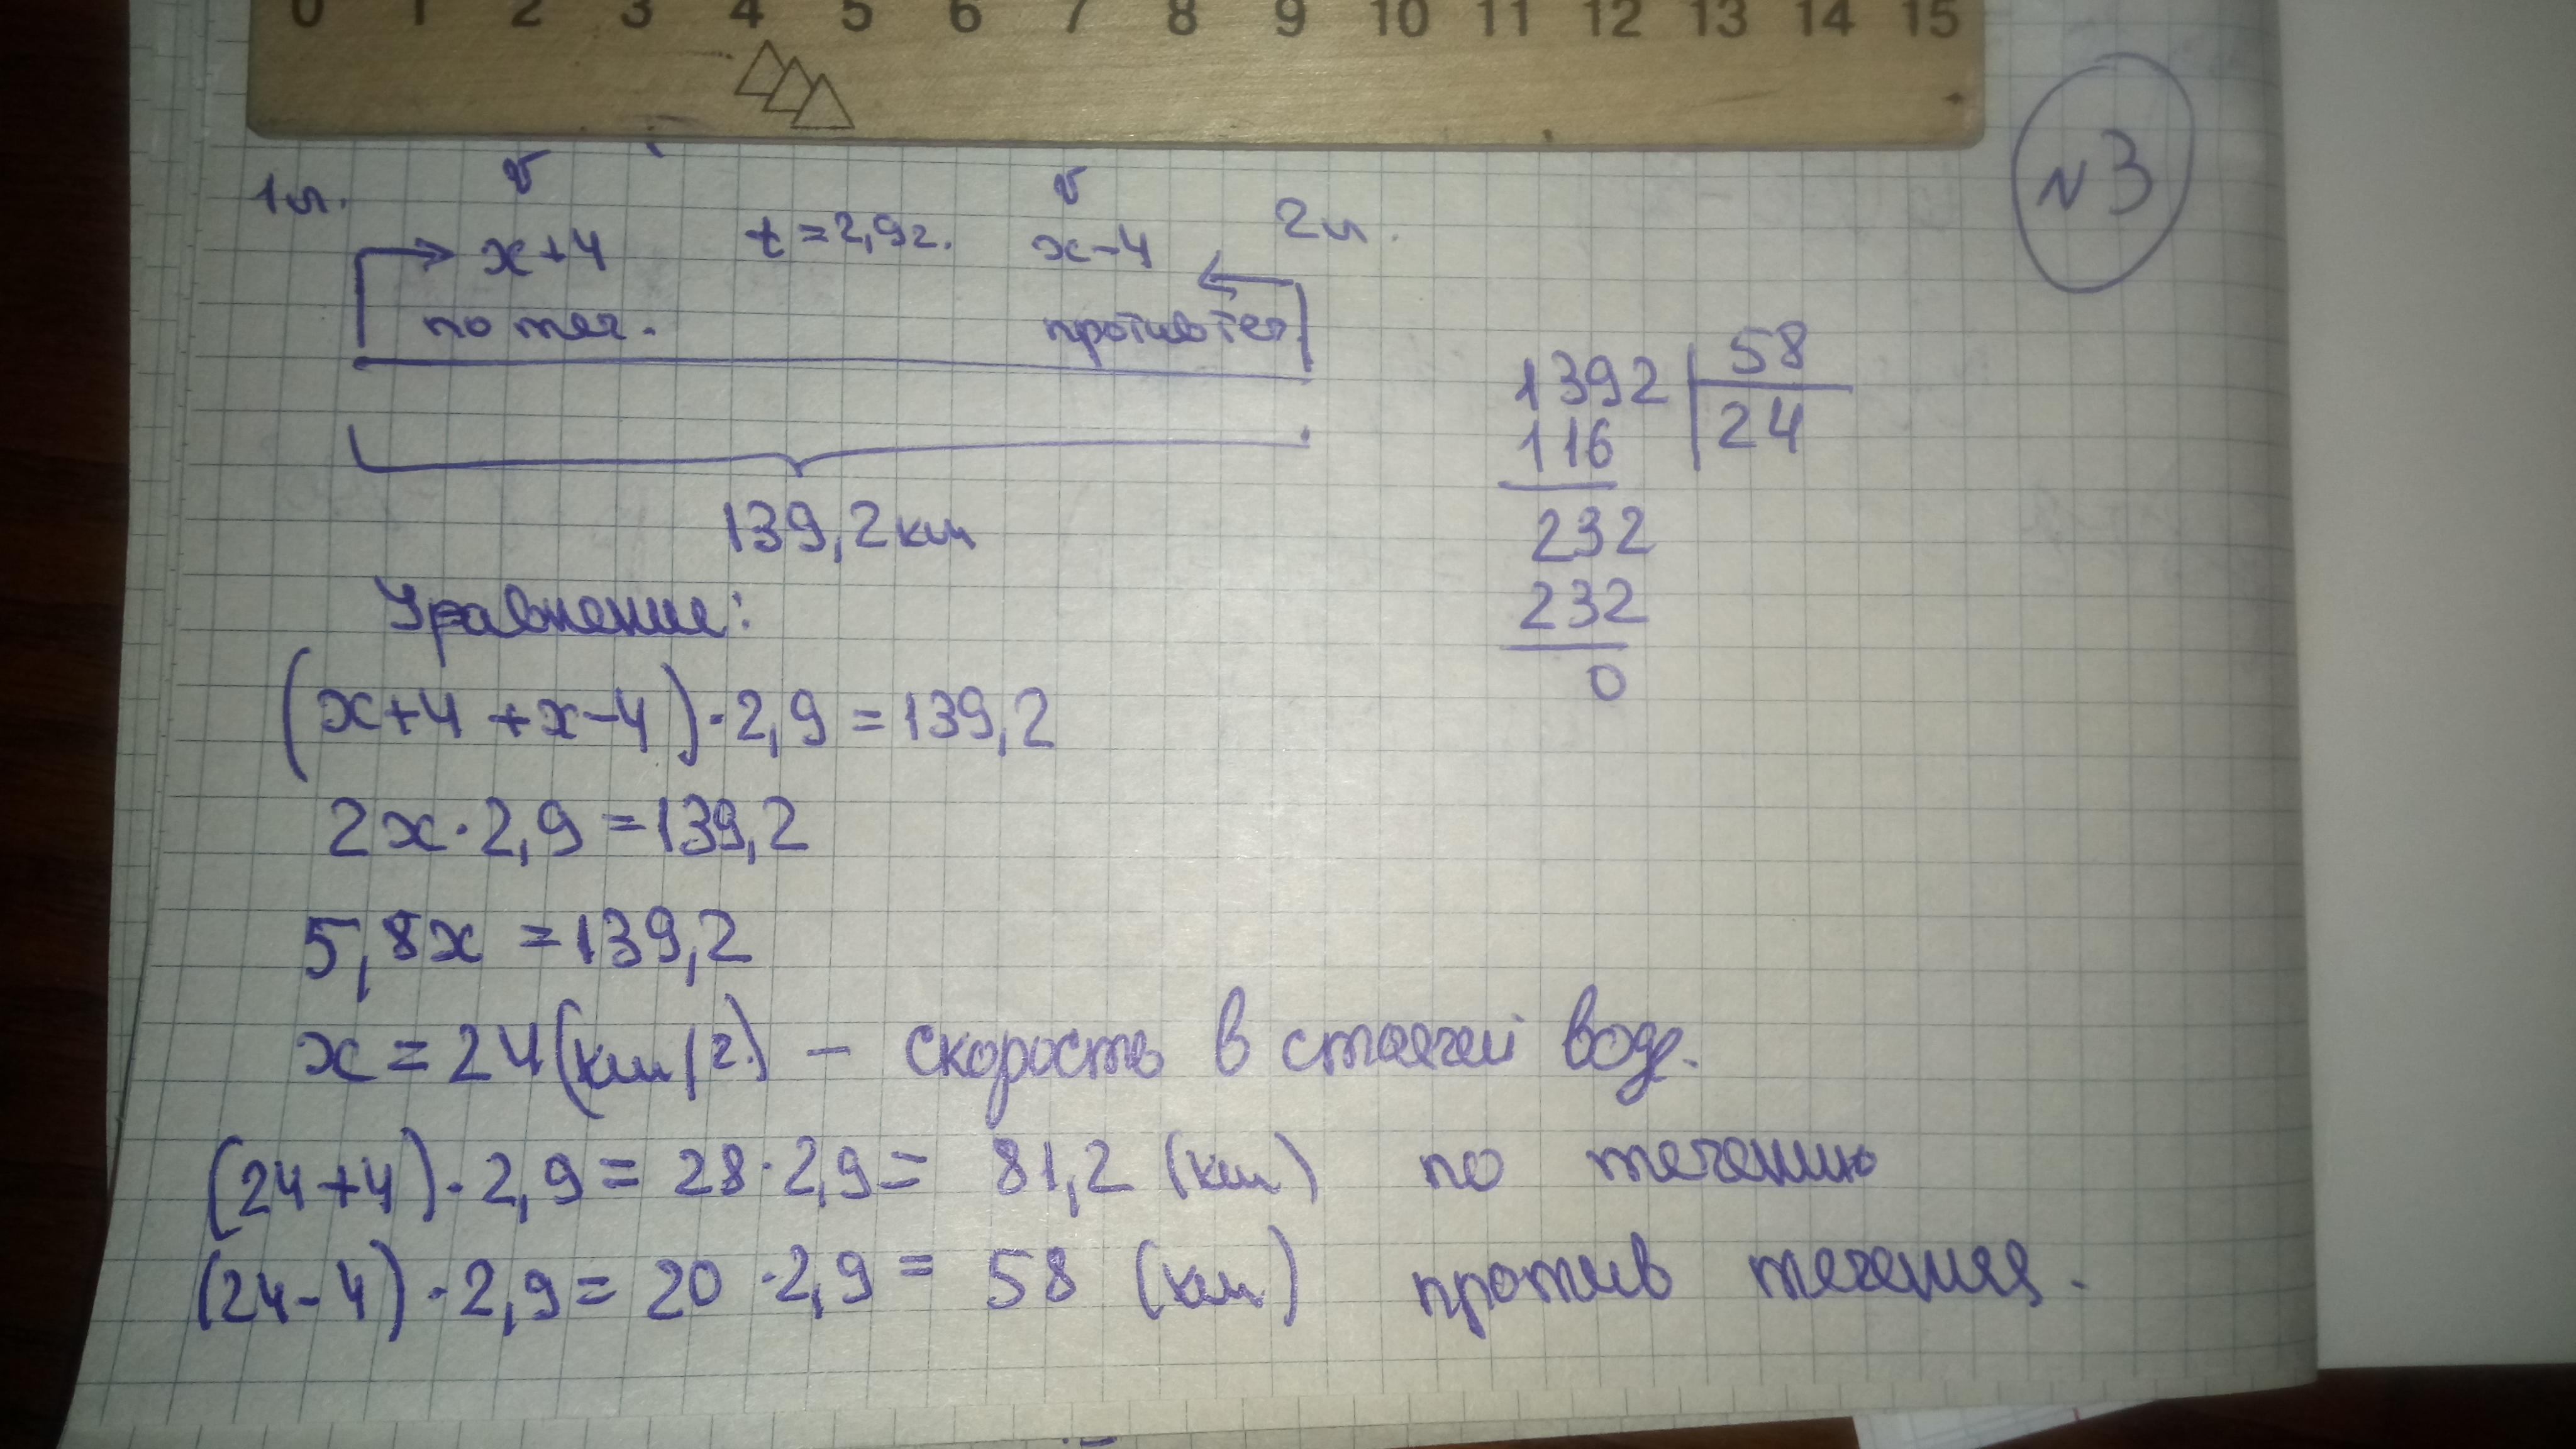 0 1 2 3 4 5 6 7 8 9 10 11 12 13 14 15
N3
1л. v v 2л.
x+4 t=2,9ч. x-4
по теч. против теч.
139,2км
1392 58
116 24
232
232
0
Уравнение:
(x+4 +x-4)·2,9=139,2
2x·2,9=139,2
5,8x=139,2
x=24(км/ч.) - скорость в стоячей воде.
(24+4)·2,9=28·2,9= 81,2 (км) по течению
(24-4)·2,9=20·2,9= 58 (км) против течения.